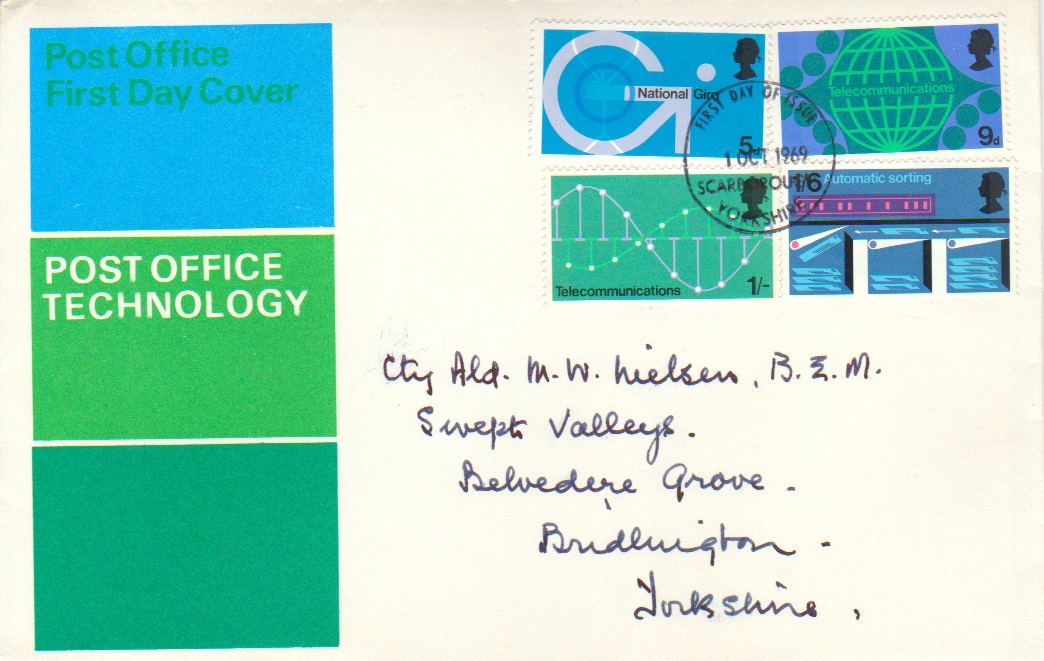 Post Office
First Day Cover
POST OFFICE
TECHNOLOGY
National Giro
5d
Telecommunications
9d
FIRST DAY OF ISSUE
1 OCT 1969
SCARBOROUGH
YORKSHIRE
Telecommunications
1/-
1/6 Automatic sorting
Cty Ald. M.W. Nielsen, B.E.M.
Swept Valleys.
Belvedere Grove.
Bridlington -
Yorkshire,